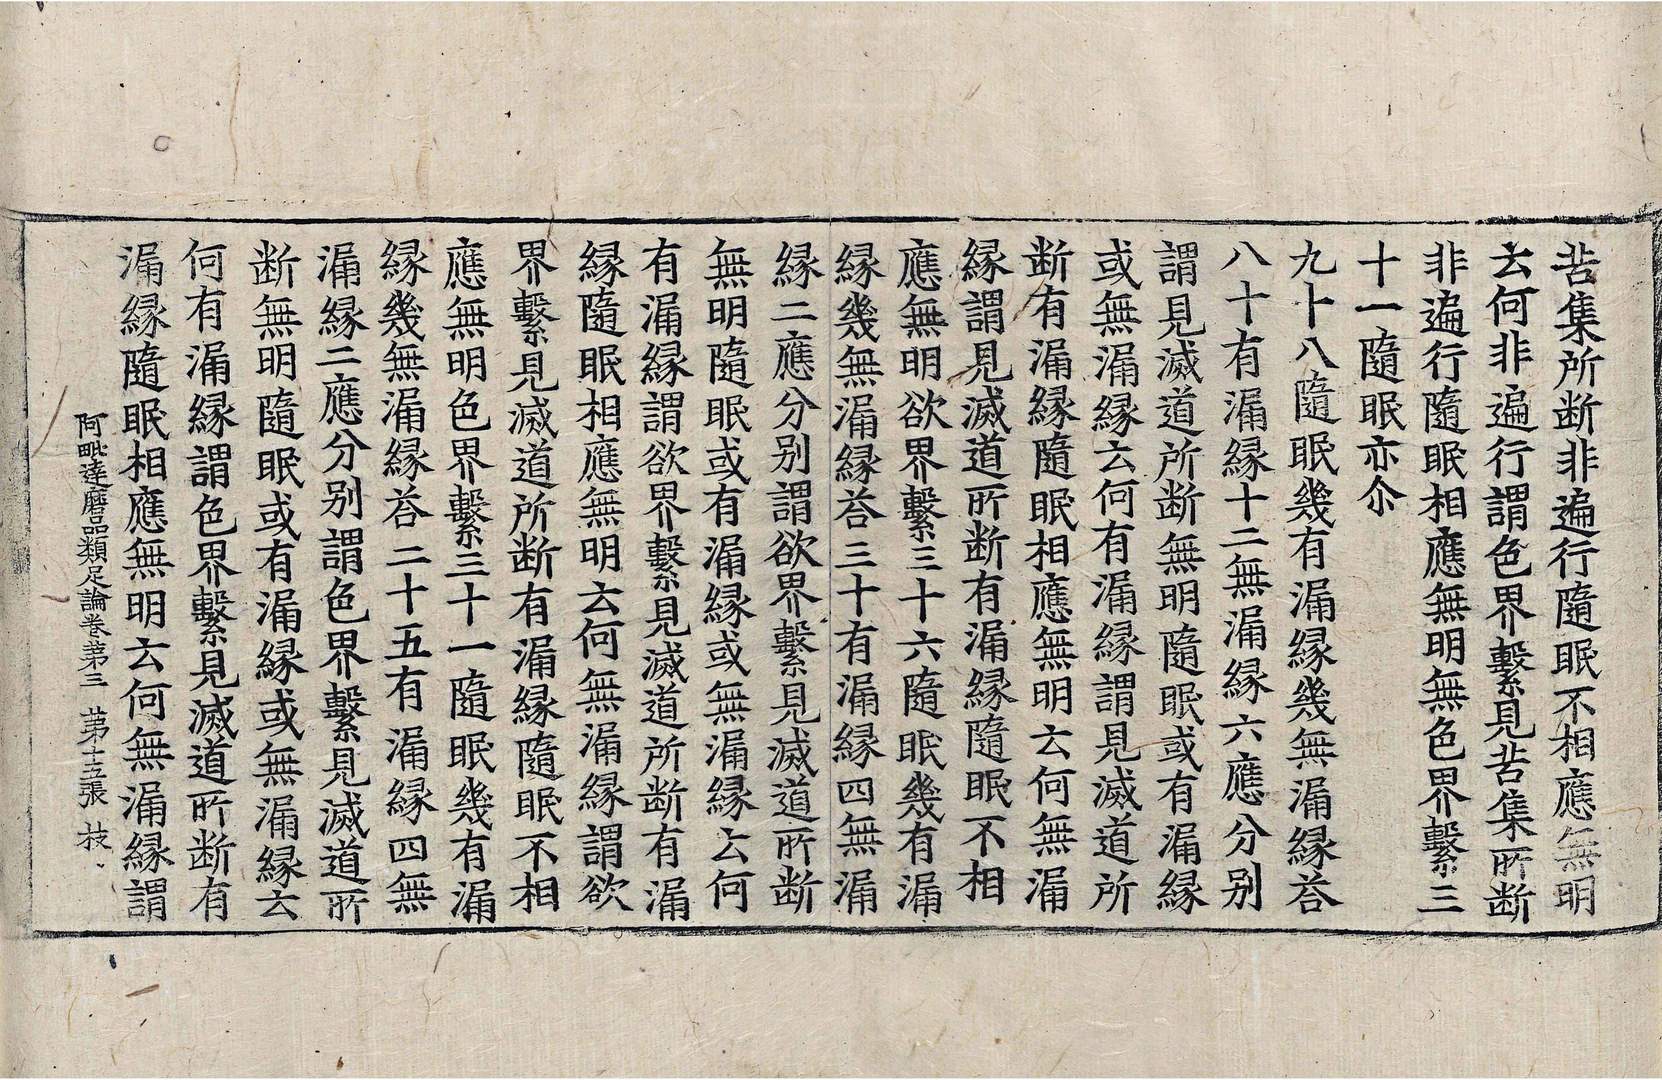 苦集所断非遍行隨眠不相應無明
云何非遍行謂色界繫見苦集所断
非遍行隨眠相應無明無色界繫三
十一隨眠亦尒
九十八隨眠幾有漏縁幾無漏縁荅
八十有漏縁十二無漏縁六應分别
謂見滅道所断無明隨眠或有漏縁
或無漏縁云何有漏縁謂見滅道所
断有漏縁隨眠相應無明云何無漏
縁謂見滅道所断有漏縁隨眠不相
應無明欲界繫三十六隨眠幾有漏
縁幾無漏縁荅三十有漏縁四無漏
縁二應分别謂欲界繫見滅道所断
無明隨眠或有漏縁或無漏縁云何
有漏縁謂欲界繫見滅道所断有漏
縁隨眠相應無明云何無漏縁謂欲
界繫見滅道所断有漏縁隨眠不相
應無明色界繫三十一隨眠幾有漏
縁幾無漏縁荅二十五有漏縁四無
漏縁二應分别謂色界繫見滅道所
断無明隨眠或有漏縁或無漏縁云
何有漏縁謂色界繫見滅道所断有
漏縁隨眠相應無明云何無漏縁謂
阿毗達磨品類足論卷第三 第十五張 枝